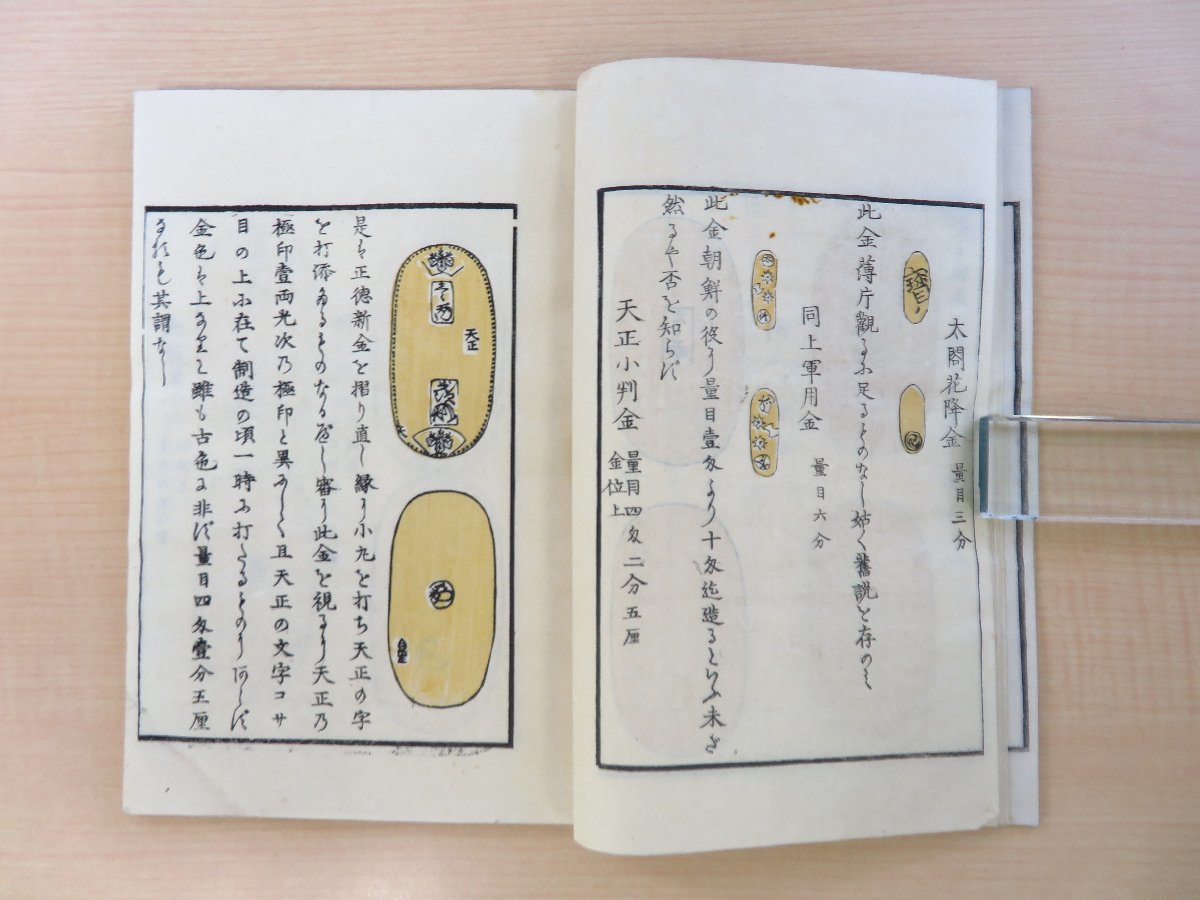 太閤花降金 量目三分
此金薄庁觀るに足るものなし姑く舊説を存のミ
同上軍用金 量目六分
此金朝鮮の役に量目壹匁より十匁迄造るといふ未だ
然るや否を知らず
天正小判金 量目四匁二分五厘
金位上
天正
是は正徳新金を摺り直し縁に小丸を打ち天正の字
を打添たるものなるべし審に此金を視るに天正乃
極印壹両光次乃極印と異にして且天正の文字コサ
目の上に在て制造の頃一時に打たるものにあらず
金色は上なりと雖も古色に非ず量目四匁壹分五厘
なれども其謂なし